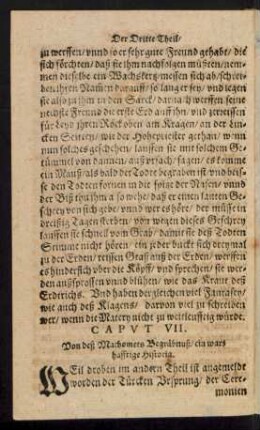 Der Dritte Theil/
zu werffen/ vnnd so er sehr gute Freund gehabt/ die
sich förchten/ daß sie ihm nachfolgen müsten/ nem-
men dieselbe ein Wachskertz/ messen sich ab/ schrei-
ben ihren Namen darauff/ so lang er sey/ vnd legen
sie also zu ihm in den Sarck/ darnach werffen seine
nechste Freund die erste Erd auff ihn/ vnd zerreissen
für Leyd ihren Rock oben am Kragen/ an der Lin-
cken Seiten/ wie der Hohepriester gethan/ wann
nun solches geschehen/ lauffen sie mit solchem Ge-
schrey von dannen/ auß vrsach/ sagen/ es komme
ein Mauß/ als bald der Todte begraben ist/ vnd beis-
se den Todten fornen in die spitze der Nasen/ vnnd
der Biß thu ihm so wehe/ daß er einen lauten Ge-
schrey von sich gebe/ vnnd wer es höre/ der müste in
dreissig Tagen sterben/ von wegen dieses Geschrey
lauffen sie schnell vom Grab/ damit sie deß Todten
Stimme nicht hören/ ein jeder buckt sich dreymal
zu der Erden/ reissen Graß auß der Erden/ werffen
es hindersich vber die Köpff/ vnd sprechen/ sie wer-
den außsprossen vnnd blühen/ wie das Kraut deß
Erdtrichs. Vnd haben dergleichen viel Fantasey/
wie auch deß Klagens/ darvon viel zu schreiben
wer/ wenn die Matery nicht zu weitleufftig würde.
CAPVT VII.
Von deß Machomets Begräbnuß/ ein war-
hafftige Historia.
WEil droben im andern Theil ist angemeldt
worden der Türcken Vrsprung/ der Cere-
monien